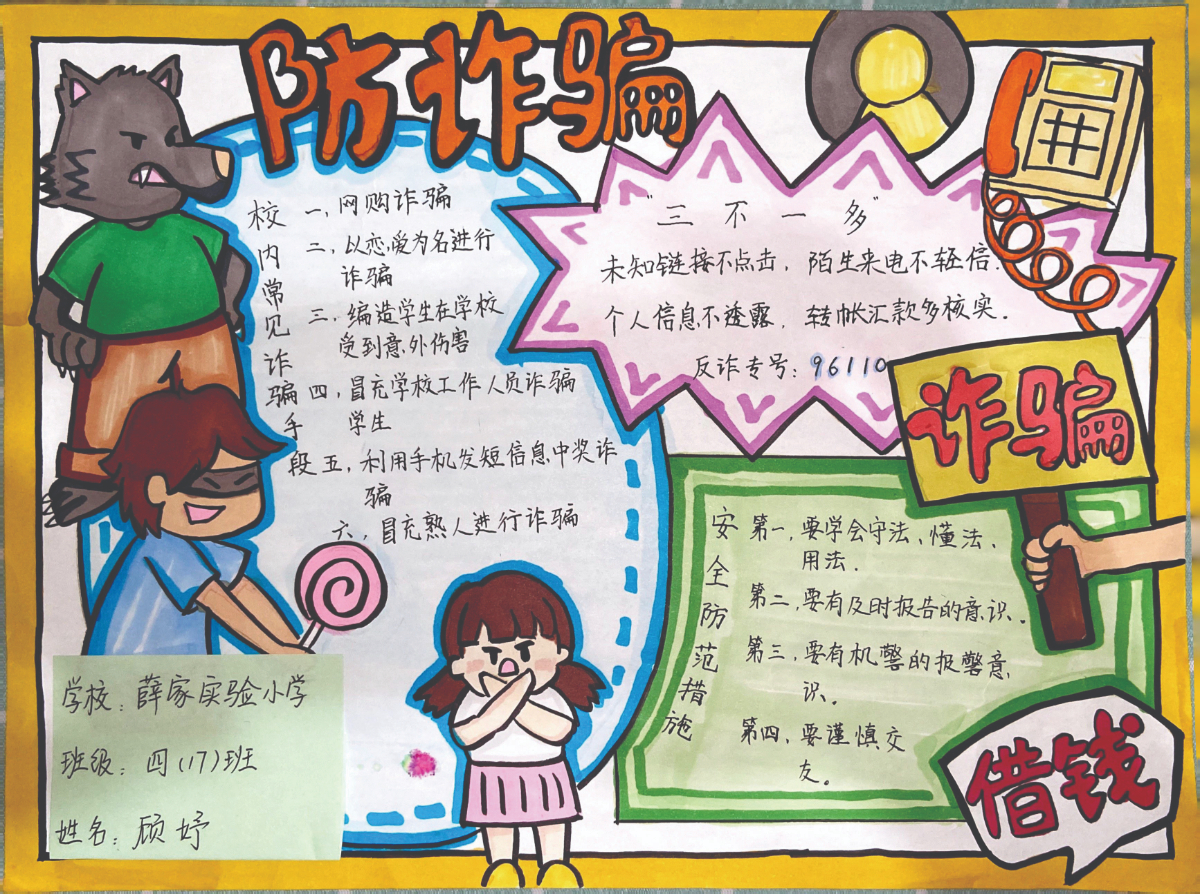 防诈骗
校内常见诈骗手段
一、网购诈骗
二、以恋爱为名进行
诈骗
三、编造学生在学校
受到意外伤害
四、冒充学校工作人员诈骗
学生
五、利用手机发短信息中奖诈
骗
六、冒充熟人进行诈骗
"三不一多"
未知链接不点击，陌生来电不轻信.
个人信息不透露，转帐汇款多核实.
反诈专号：96110
诈骗
安全防范措施
第一，要学会守法、懂法、
用法.
第二，要有及时报告的意识。
第三，要有机警的报警意
识。
第四，要谨慎交
友。
借钱
学校：薛家实验小学
班级：四(17)班
姓名：顾妤